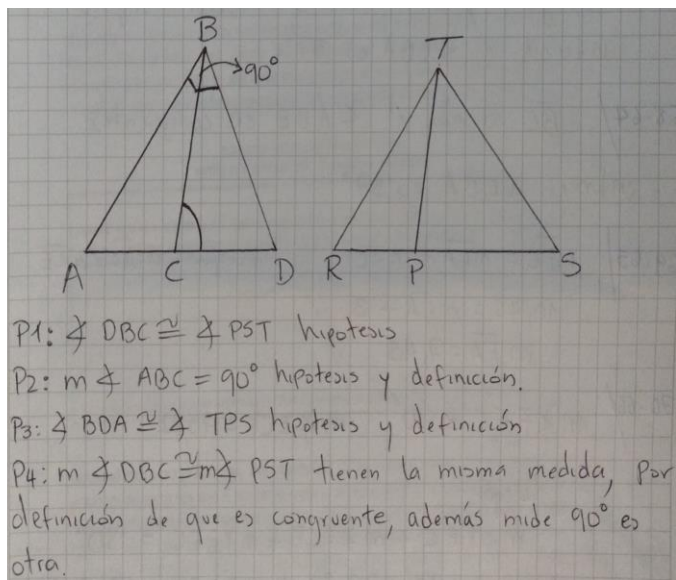 B
T
90°
A C D R P S
P1: ∡ DBC ≅ ∡ PST hipotesis
P2: m ∡ ABC = 90° hipotesis y definición.
P3: ∡ BDA ≅ ∡ TPS hipotesis y definición
P4: m ∡ DBC ≅ m∡ PST tienen la misma medida, por
definición de que es congruente, además mide 90° es
otra.